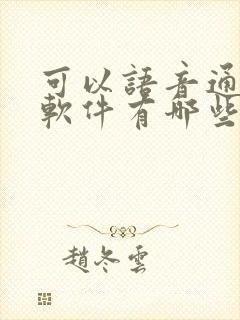 可以語音通
軟件有哪些
趙冬雲